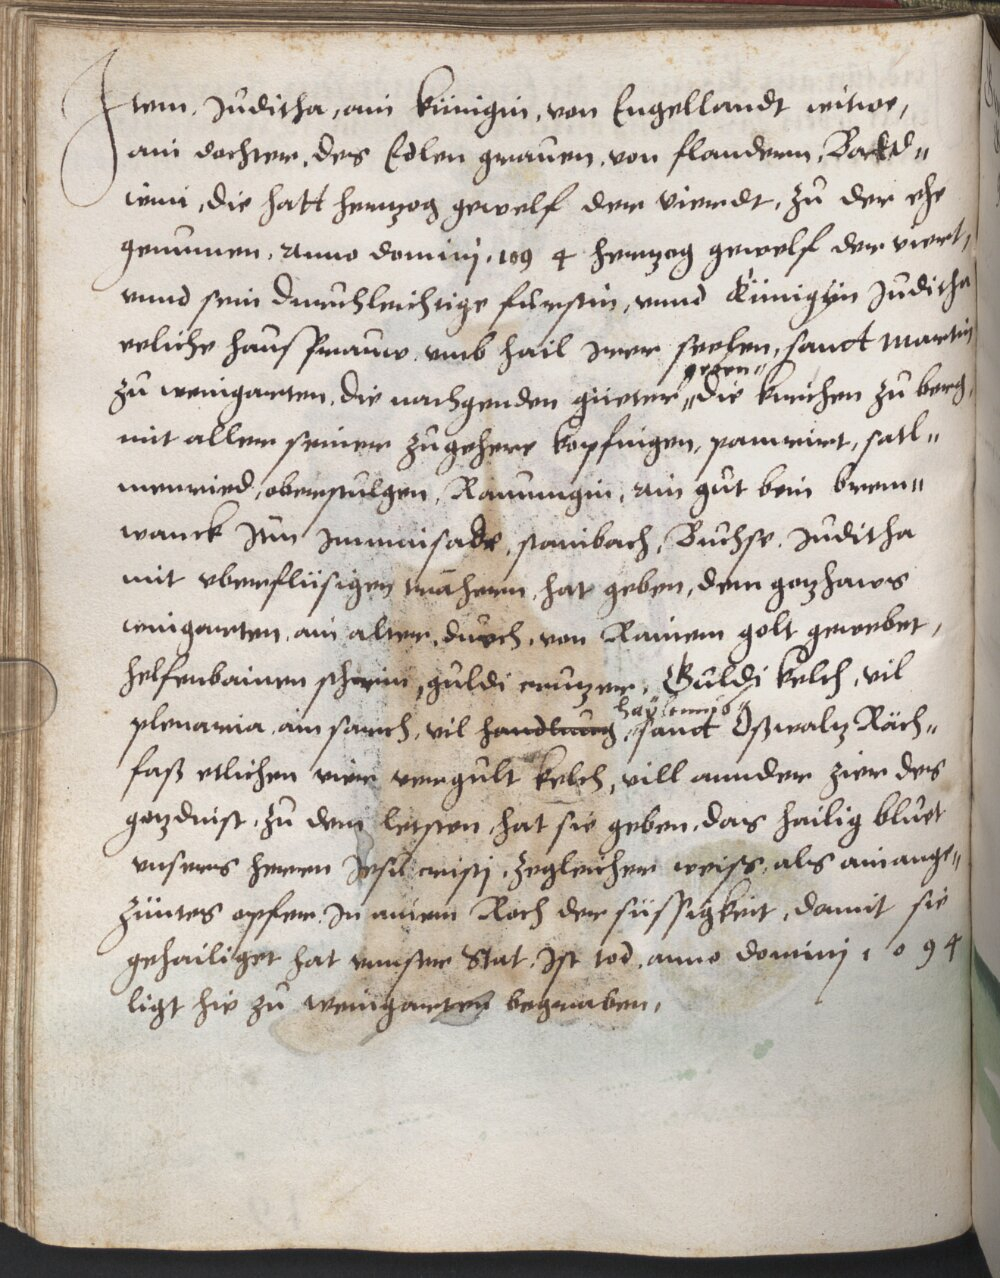 Item Juditha, ain künigin, von Engellandt witwe,
ain dochter, des Edlen grauen, von flandern, Backd„
wini, die hatt hertzog gewelf der vierdt, zů der ehe
genumen, Anno dominj, 1094 hertzog gewelf der viert,
vnnd sein durchleichtige fürstin, vnnd künigÿn Juditha
eeliche hausfrauw, vmb hail irer seelen, sanct martin
geben„
zů weingarten, die nachgenden güeter„ die kirchen zů berg,
mit aller seiner zůgehere kopfingen, satl„
menried, oberstulgen, ain gůt bein brem„
wanck Jm stainbach, Buchse, Juditha
mit vberflüsigen hat geben, dem gotzhaws
weingarten, ain alter, důoch, von Rainem golt gewebet,
helfenbainen schrein, guldi creutzer, Guldi kelch, vil
haÿltumb„
plenaria, ain sarch, vil handlung, sanct Oßwaltz Räch„
faß etlichen vier vergult kelch, vill annder zier des
gotzdinst, zů dem letsten, hat sie geben, das hailig blůet
vnsers herren Jesu cristj, zegleicher weiss, als ain ange„
züntes opfer, In ainem Roch der süssigkeit, damit sie
gehailiget hat vnnser Stat, Ist tod, anno dominj 1094
ligt hie zů weingarten begraben,